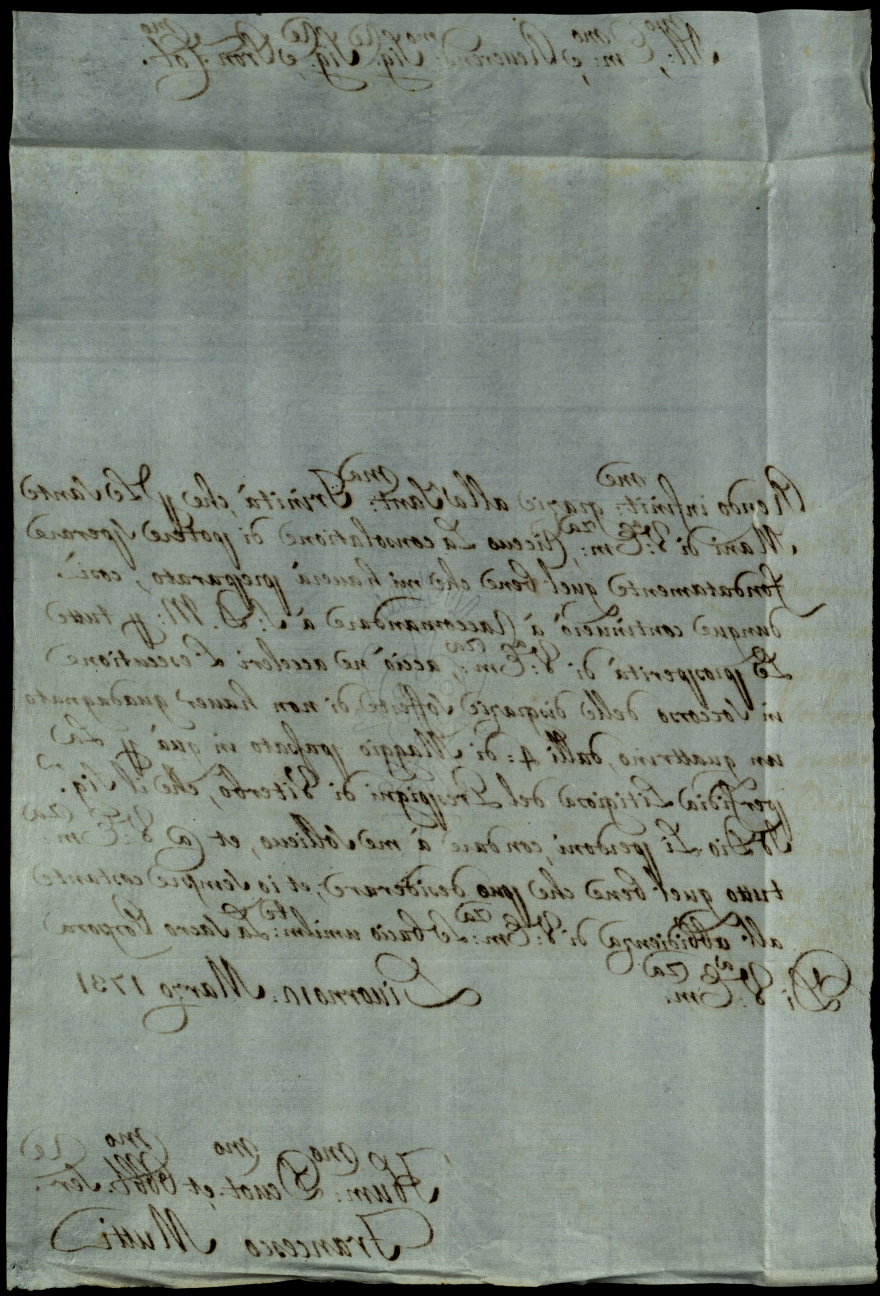 Ill:mo Em:mo e Reverend:mo Sig:re Sig:re e Pron: Col:mo
Rendo infinit:me grazie alla Sant:ma Trinità, che p Le Sante
Mani di V:ra Em:za Riceuo La consolatione di potere sperare
fondatamente quel bene che mi hauerà preparato, così
dunque continuerò à Raccomandare à S: D. M: p tutte
Le prosperità di V:ra Em:za, acciò ne acceleri L'esecutione
in soccorso delle disgrazie sofferte di non hauer guadagnato
un quattrino, dalli 4: di Maggio passato in quà p La
perfidia Litigiosa del Crespigni di Viterbo, che il Sig.re
Iddio Li perdoni, con dare à me sollieuo, et @ V:ra Em:za
tutto quel bene che puo desiderare, et io sempre costante
all' obbidienza di V: Em:za Le bacio umilm:te La Sacro Porpora
Di V:ra Em:za Liuorno 10: Marzo 1731
Hum:mo Deuot:mo et Obbl:mo Ser:re
Francesco Mutti